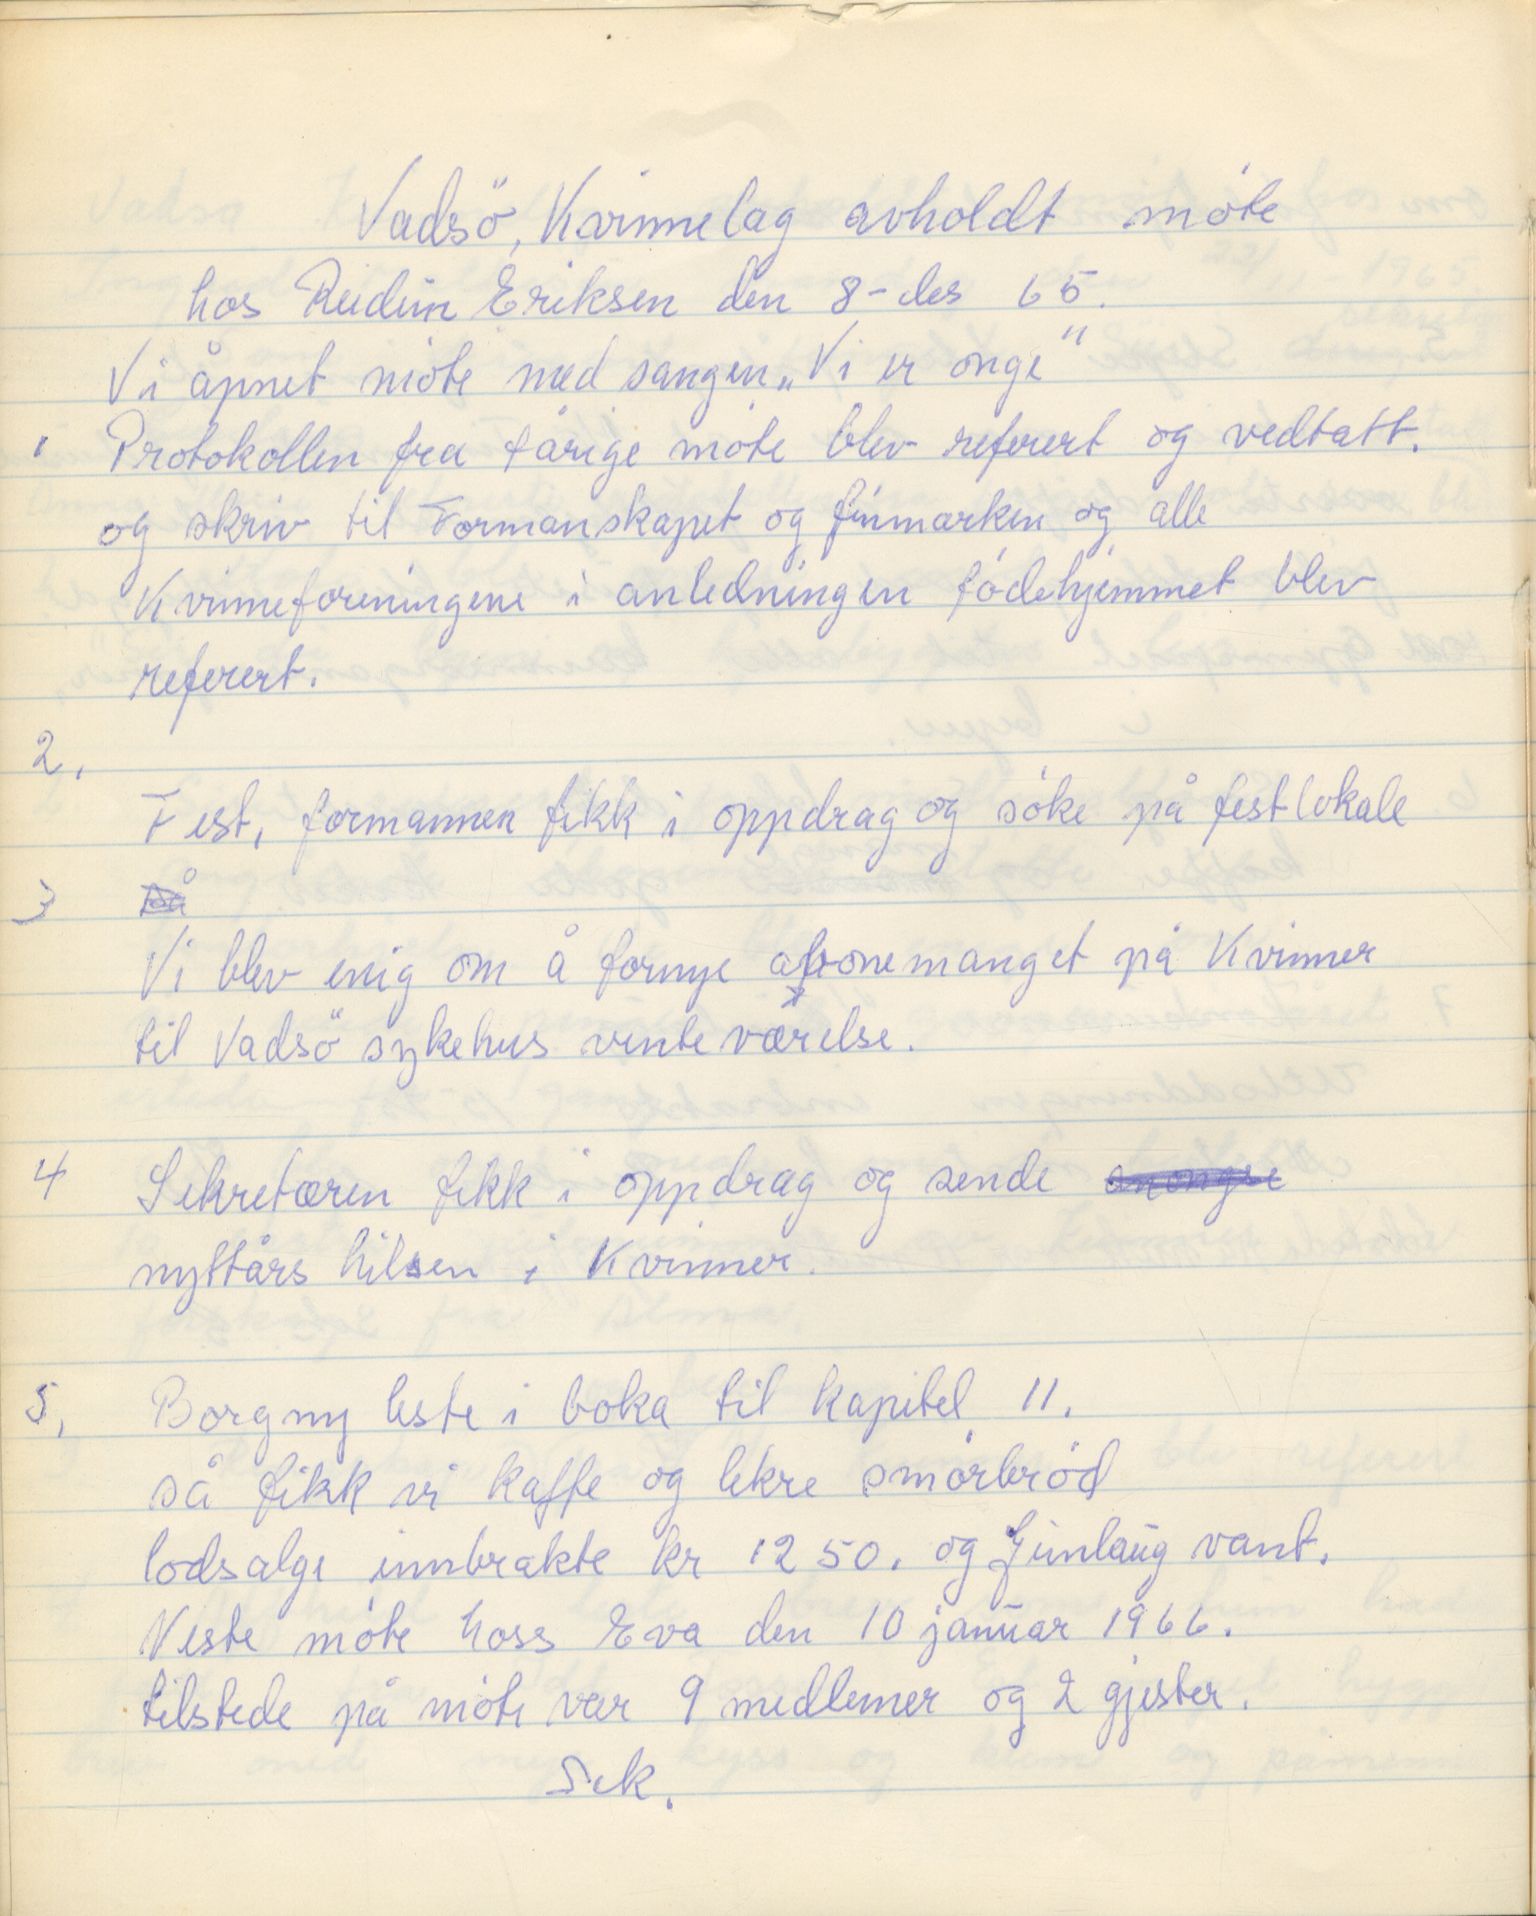 Vadsö, Kvinnelag avholdt möte
hos Reidun Eriksen den 8-des 65.
Vi åpnet möte med sangen „Vi er onge"
1 Protokollen fra færige möte blev referert og vedtatt.
og skriv til Formanskapet og finmarken og alle
Kvinneforeningene i anledningen födehjemmet blev
referert.
2.
Fest, formannen fikk i oppdrag og söke på festlokale
3 På
Vi blev enig om å fornye abonemanget på Kvinner
til Vadsö sykehus venteværelse.
4 Sekretæren fikk i oppdrag og sende
nyttårs hilsen i Kvinner.
5, Borgny leste i boka til kapitel 11.
så fikk vi kaffe og lekre smörbröd
lodsalge innbrakte kr 1250. og Gunlaug vant.
Neste möte hoss Eva den 10 januar 1966.
tilstede på möte var 9 medlemer og 2 gjester.
Sek.